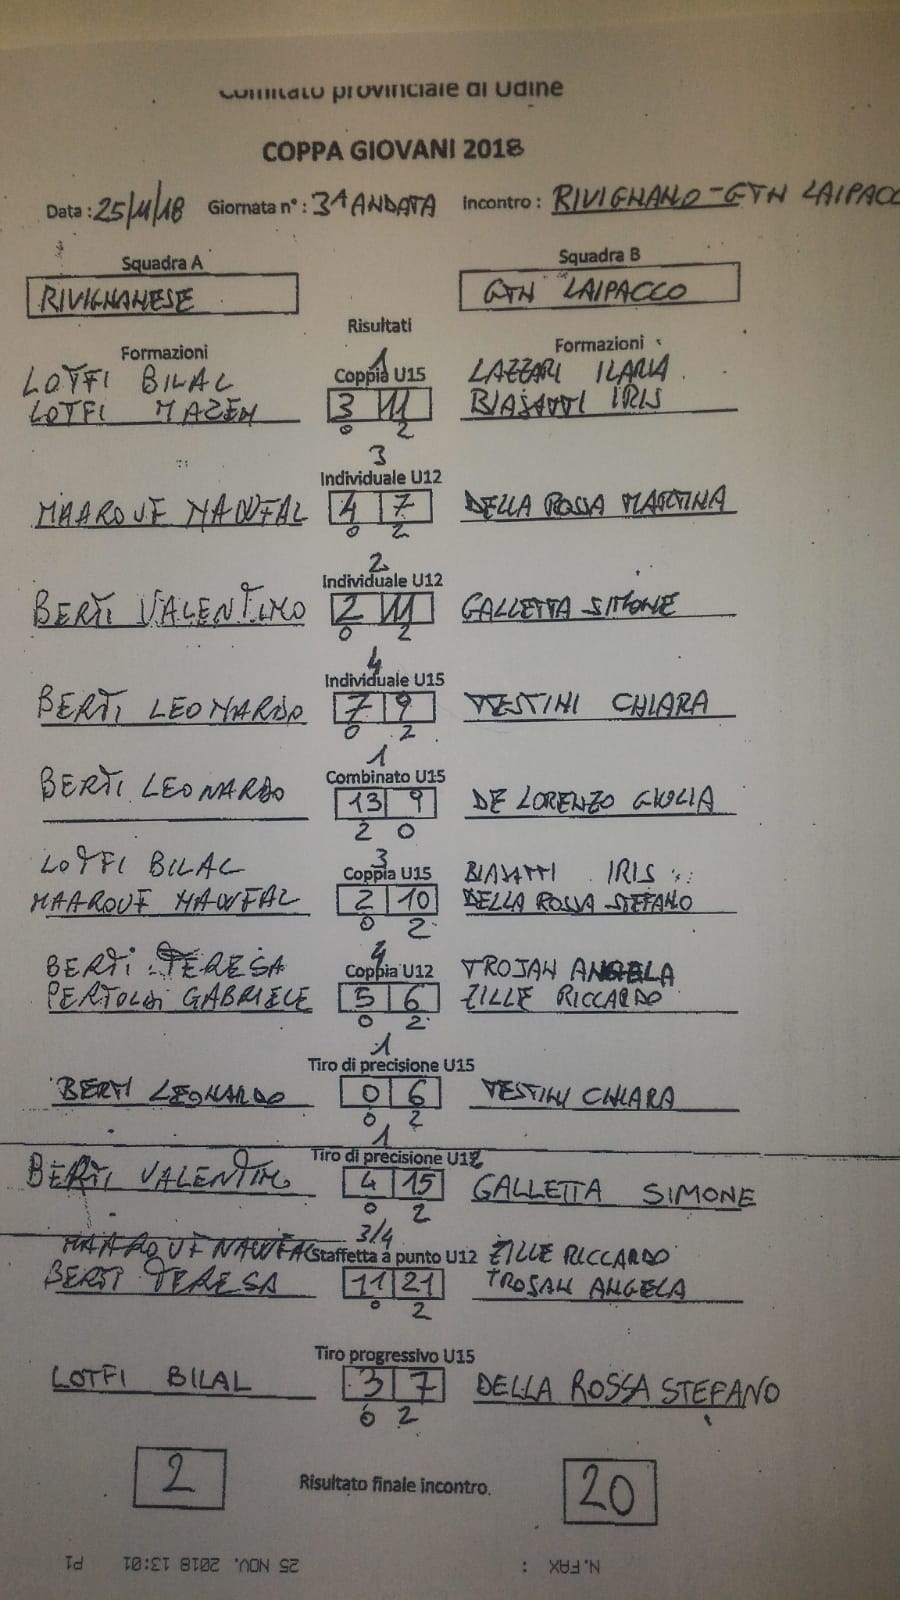 Comitato provinciale di Udine
COPPA GIOVANI 2018
Data : 25/11/18 Giornata n° : 3^ ANDATA Incontro : RIVIGNANO - GTN LAIPACC
Squadra A Squadra B
RIVIGNANESE GTN LAIPACCO
Risultati
Formazioni 1 Formazioni
LOTFI BILAL Coppia U15 LAZZARI ILARIA
LOTFI MAZEN 3 11 BIASATTI IRIS
0 2
3
Individuale U12
MAAROUF NAWFAL 4 7 DELLA ROSSA MARTINA
0 2
2
Individuale U12
BERTI VALENTINO 2 11 GALLETTA SIMONE
0 2
4
Individuale U15
BERTI LEONARDO 7 9 TESTINI CHIARA
0 2
1
Combinato U15
BERTI LEONARDO 13 9 DE LORENZO GIULIA
2 0
3
LOTFI BILAL Coppia U15 BIASATTI IRIS
MAAROUF NAWFAL 2 10 DELLA ROSSA STEFANO
0 2
4
BERTI TERESA Coppia U12 TROJAN ANGELA
PERTOLDI GABRIELE 5 6 ZILLE RICCARDO
0 2
1
Tiro di precisione U15
BERTI LEONARDO 0 6 TESTINI CHIARA
0 2
1
Tiro di precisione U12
BERTI VALENTINO 4 15 GALLETTA SIMONE
0 2
3/4
MAAROUF NAWFAL Staffetta a punto U12 ZILLE RICCARDO
BERTI TERESA 11 21 TROJAN ANGELA
0 2
Tiro progressivo U15
LOTFI BILAL 3 7 DELLA ROSSA STEFANO
0 2
2 Risultato finale incontro. 20
N.FAX : 25 NOV. 2018 13:01 P1